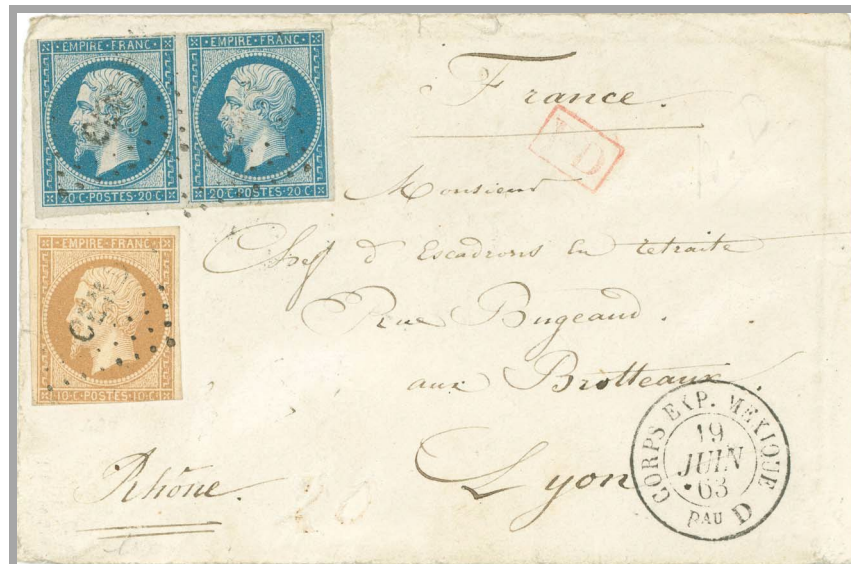 EMPIRE FRANC
EMPIRE FRANC
20 C POSTES 20 C
20 C POSTES 20 C
EMPIRE FRANC
10 C POSTES 10 C
France.
PD
Monsieur
Chef d'Escadrons en retraite
Rue Bugeaud.
aux Brotteaux.
Lyon
Rhône.
CORPS EXP. MEXIQUE
19
JUIN
63
BAU D